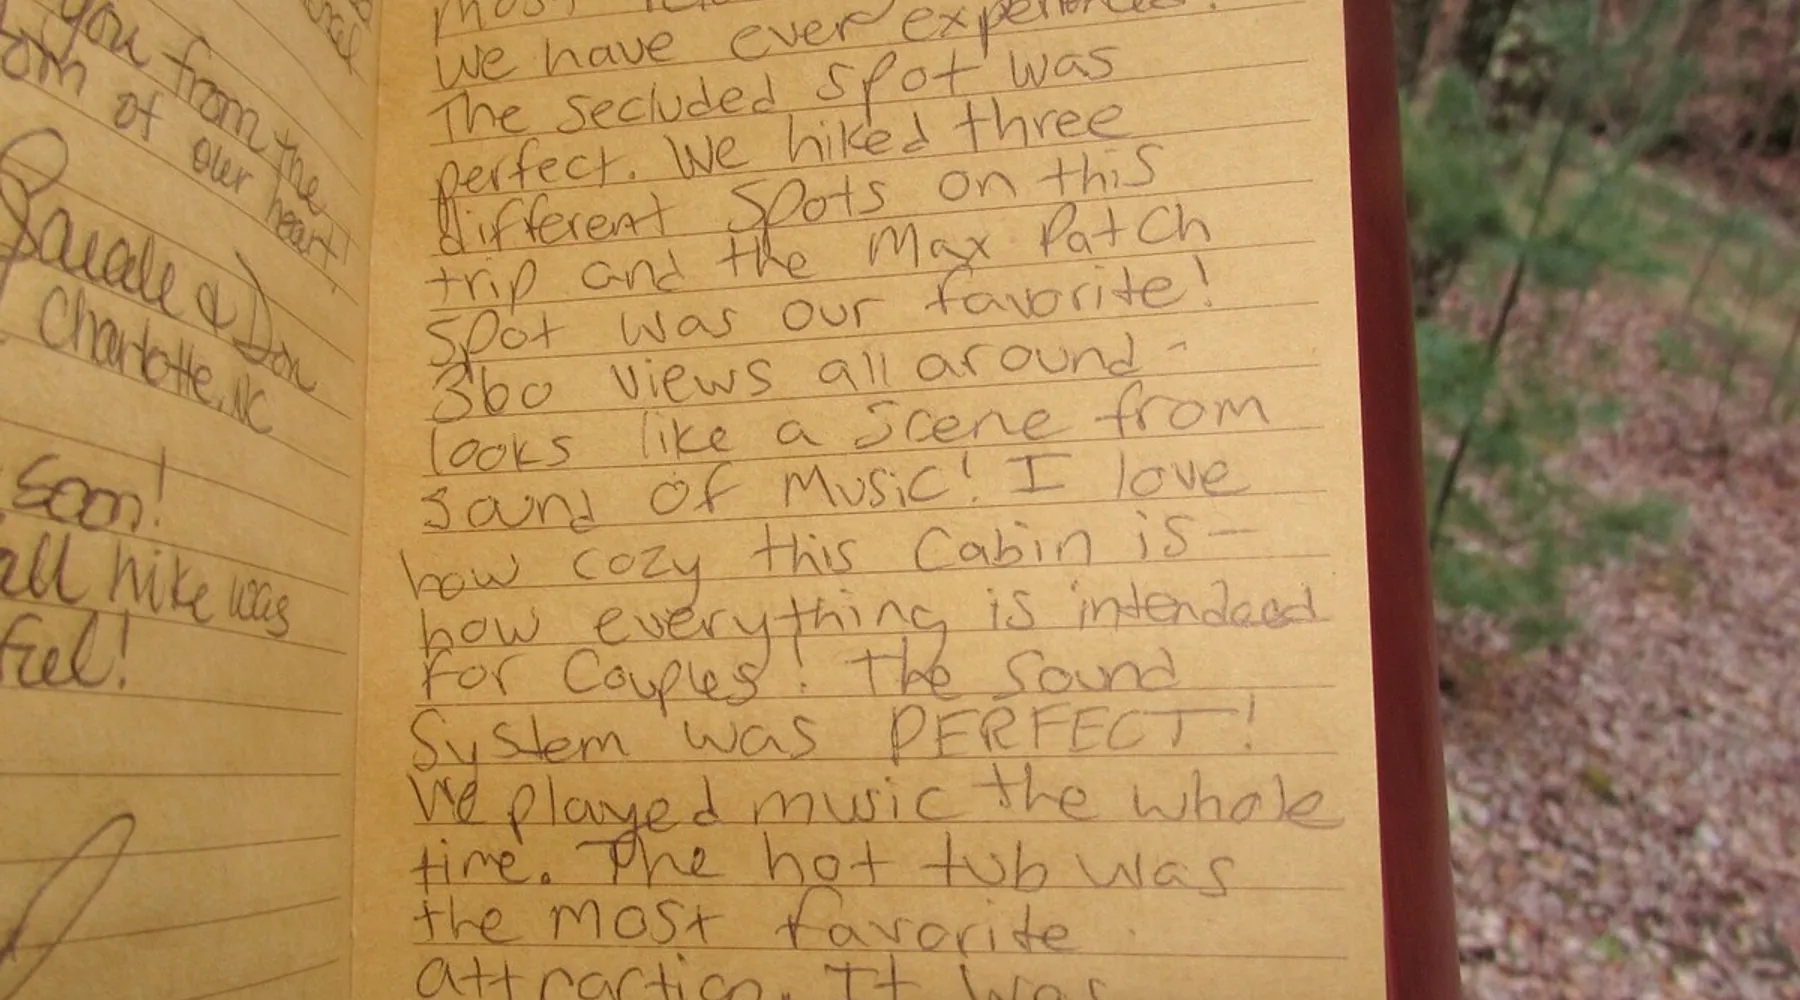 you from the
om of our heart!
& Don
Charlotte, NC
soon!
all hike was
ful!
most
we have ever experienced!
The secluded spot was
perfect. We hiked three
different spots on this
trip and the Max Patch
spot was our favorite!
360 views all around -
looks like a scene from
sound of Music! I love
how cozy this cabin is -
how everything is intended
for Couples! The sound
System was PERFECT!
We played music the whole
time. The hot tub was
the most favorite
attraction. It was